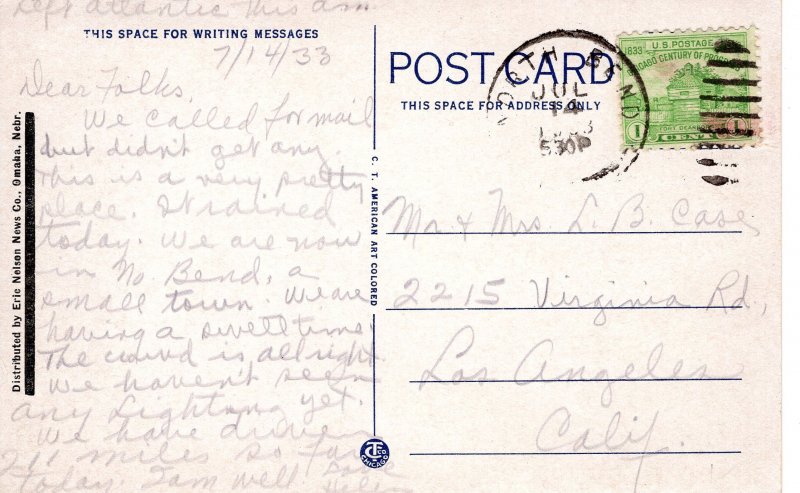 left atlantic this a.m.
THIS SPACE FOR WRITING MESSAGES
7/14/33
Dear Folks,
We called for mail
but didn't get any.
This is a very pretty
place. It rained
today. We are now
in No. Bend, a
small town. We are
having a swell time.
The crowd is allright.
We haven't seen
any lightning yet.
We have driven
211 miles so far
today. I am well. Love
Distributed by Eric Nelson News Co., Omaha, Nebr.
C. T. AMERICAN ART COLORED
CTCO
CHICAGO
POST CARD
THIS SPACE FOR ADDRESS ONLY
NORTH BEND
JUL
14
530P
1833 U.S. POSTAGE
CHICAGO CENTURY OF PROGRESS
FORT DEARBORN
1 CENT 1
Mr & Mrs. L. B. Case,
2215 Virginia Rd.,
Los Angeles
Calif.